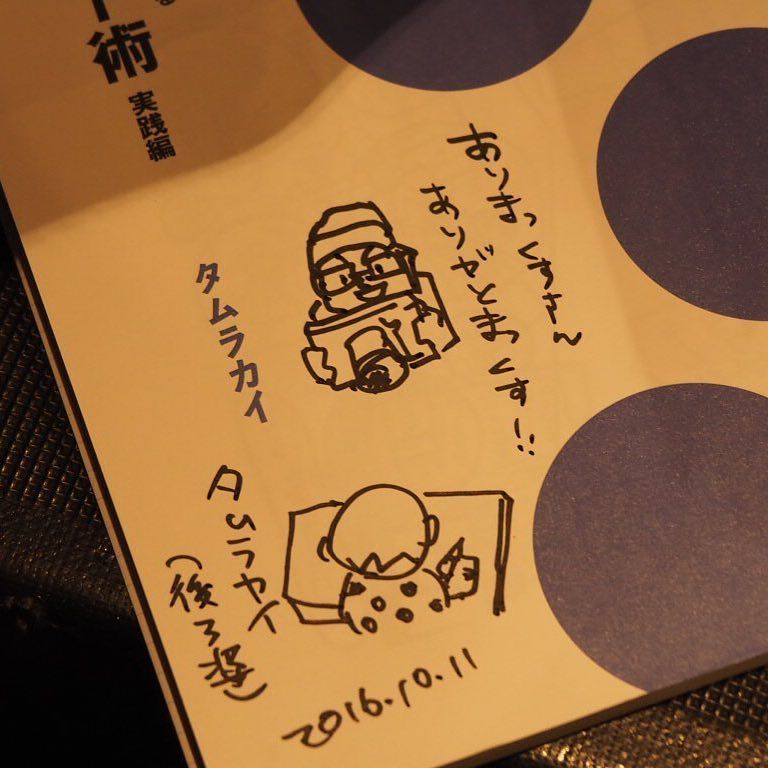 ありまっくすさん
ありがとまっくす!!
タムラカイ
ト術 実践編
タムラカイ
(後ろ姿)
2016.10.11